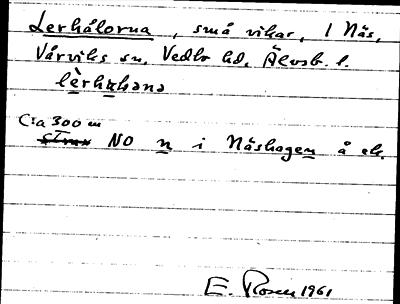 Lerhålorna, små vikar, 1 Näs,
Vårviks sn, Vedbo hd, Älvsb. l.
lèrhɷḷana
Cia 300 m
NO n i Näshagen å ek.
E. Rosen 1961